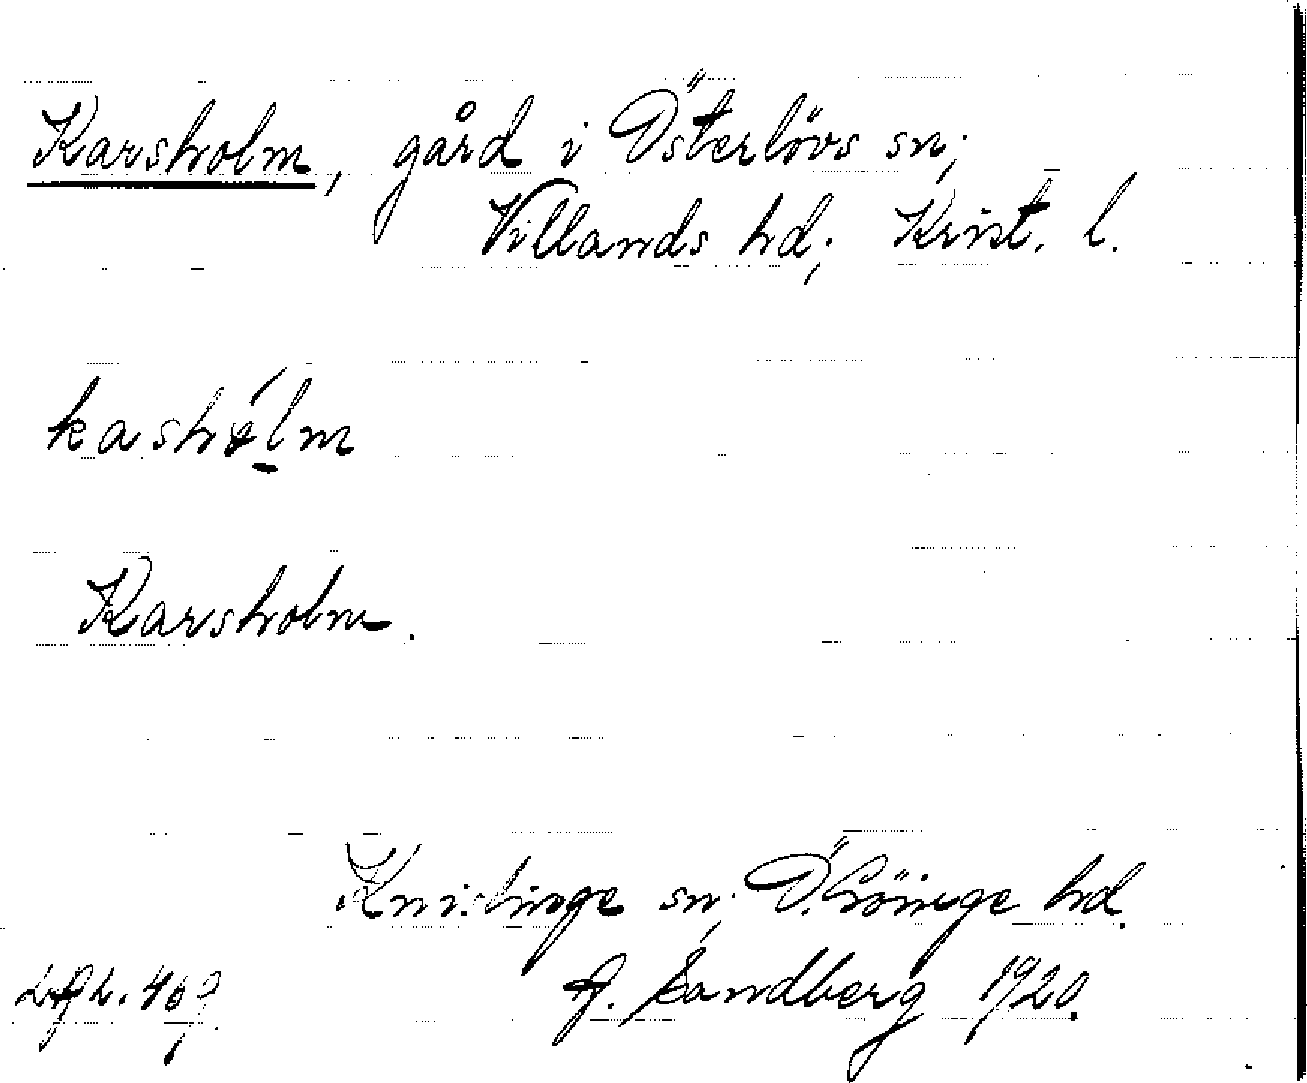 Karsholm, gård i Österlövs sn;
Villands hd; Krist. l.
Karsholm.
Knislinge sn; Ö. Göinge hd.
Sandberg 1920.